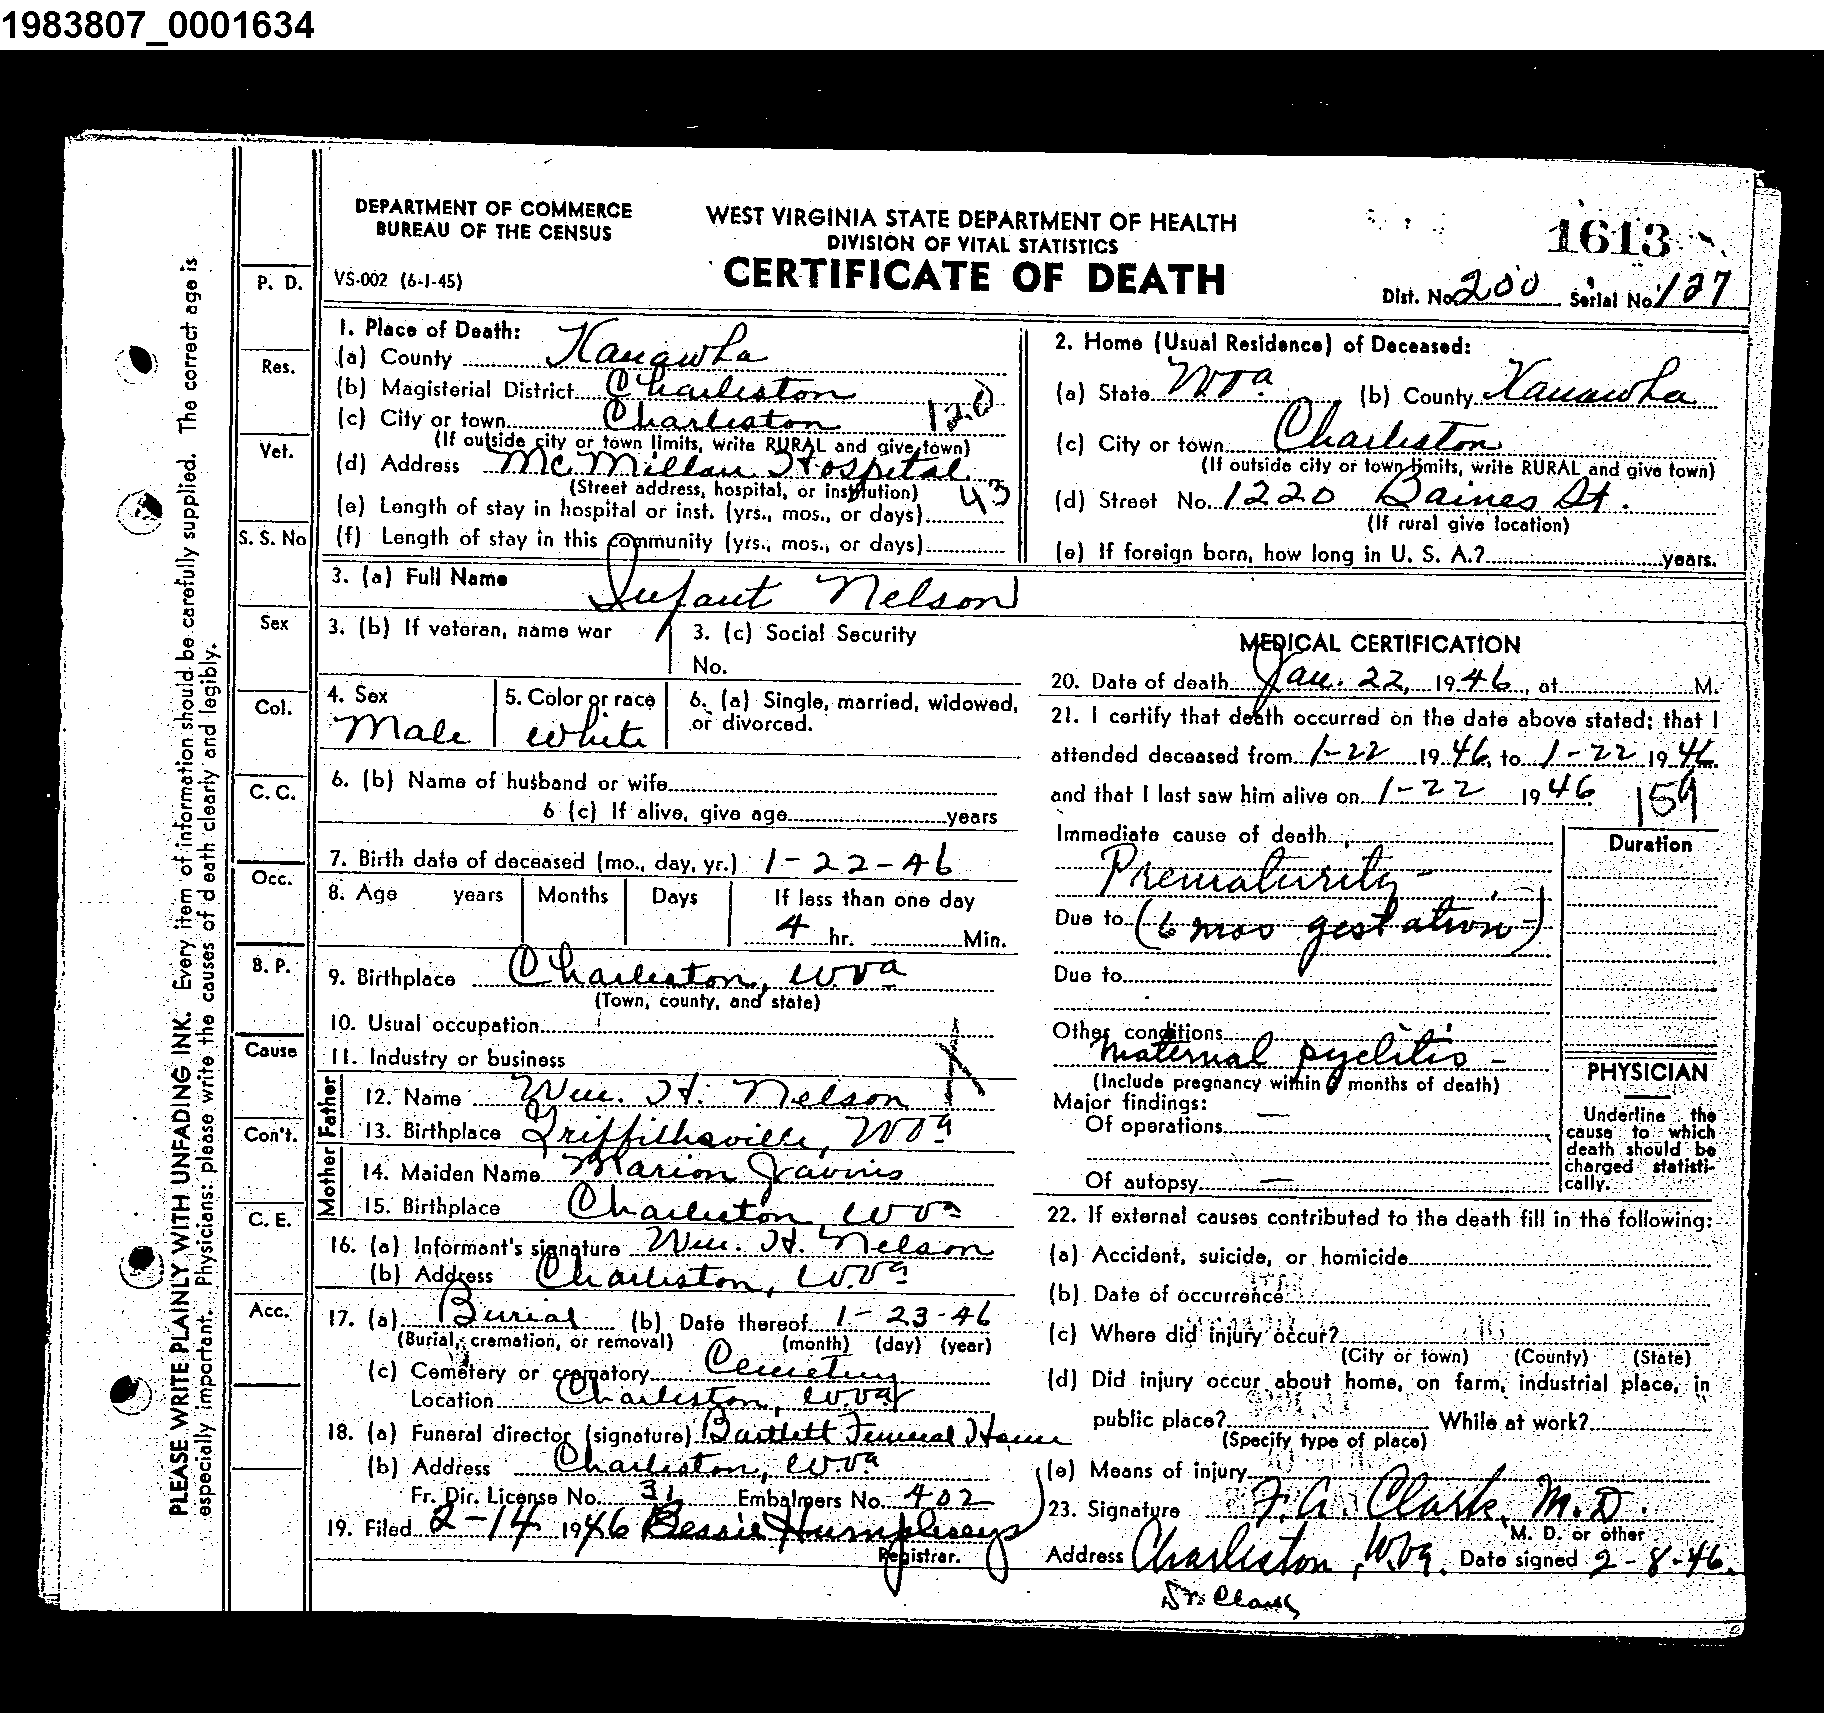 1983807_0001634
DEPARTMENT OF COMMERCE
BUREAU OF THE CENSUS
WEST VIRGINIA STATE DEPARTMENT OF HEALTH
DIVISION OF VITAL STATISTICS
CERTIFICATE OF DEATH
1613
VS-002 (6-1-45)
Dist. No. 200 Serial No. 127
PLEASE WRITE PLAINLY WITH UNFADING INK. Every item of information should be carefully supplied. The correct age is
especially important. Physicians: please write the causes of death clearly and legibly.
P. D.
Res.
Vet.
S. S. No
Sex
Col.
C. C.
Occ.
B. P.
Cause
Con't.
C. E.
Acc.
1. Place of Death:
(a) County Kanawha
(b) Magisterial District Charleston
(c) City or town Charleston 120
(If outside city or town limits, write RURAL and give town)
(d) Address McMillan Hospital
(Street address, hospital, or institution) 43
(e) Length of stay in hospital or inst. (yrs., mos., or days)
(f) Length of stay in this community (yrs., mos., or days)
2. Home (Usual Residence) of Deceased:
(a) State WVa (b) County Kanawha
(c) City or town Charleston
(If outside city or town limits, write RURAL and give town)
(d) Street No. 1220 Baines St.
(If rural give location)
(e) If foreign born, how long in U. S. A.? years.
3. (a) Full Name Infant Nelson
3. (b) If veteran, name war
3. (c) Social Security
No.
4. Sex
Male
5. Color or race
white
6. (a) Single, married, widowed,
or divorced.
6. (b) Name of husband or wife
6 (c) If alive, give age years
7. Birth date of deceased (mo., day, yr.) 1-22-46
8. Age years Months Days If less than one day
4 hr. Min.
9. Birthplace Charleston, W Va
(Town, county, and state)
10. Usual occupation
11. Industry or business
Father
12. Name Wm. H. Nelson
13. Birthplace Griffithsville, W Va
Mother
14. Maiden Name Marion
15. Birthplace Charleston, W Va
16. (a) Informant's signature Wm. H. Nelson
(b) Address Charleston, W. Va
17. (a) Burial (b) Date thereof 1-23-46
(Burial, cremation, or removal) (month) (day) (year)
(c) Cemetery or crematory Cemetery
Location Charleston, W. Va
18. (a) Funeral director (signature) Bartlett Funeral Home
(b) Address Charleston, W. Va
Fr. Dir. License No. 31 Embalmers No. 402
19. Filed 2-14 1946 Bessie Humphreys
Registrar.
MEDICAL CERTIFICATION
20. Date of death Jan. 22, 1946, at M.
21. I certify that death occurred on the date above stated; that I
attended deceased from 1-22 1946, to 1-22 1946
and that I last saw him alive on 1-22 1946 159
Immediate cause of death
Prematurity -
Due to (6 mos gestation-)
Due to
Duration
Other conditions
maternal pyelitis -
(Include pregnancy within 9 months of death)
Major findings:
Of operations —
Of autopsy —
PHYSICIAN
Underline the
cause to which
death should be
charged statisti-
cally.
22. If external causes contributed to the death fill in the following:
(a) Accident, suicide, or homicide
(b) Date of occurrence
(c) Where did injury occur?
(City or town) (County) (State)
(d) Did injury occur about home, on farm, industrial place, in
public place? While at work?
(Specify type of place)
(e) Means of injury
23. Signature F. A. Clark, M.D.
M. D. or other
Address Charleston, W.Va. Date signed 2-8-46.
Dr. Clark